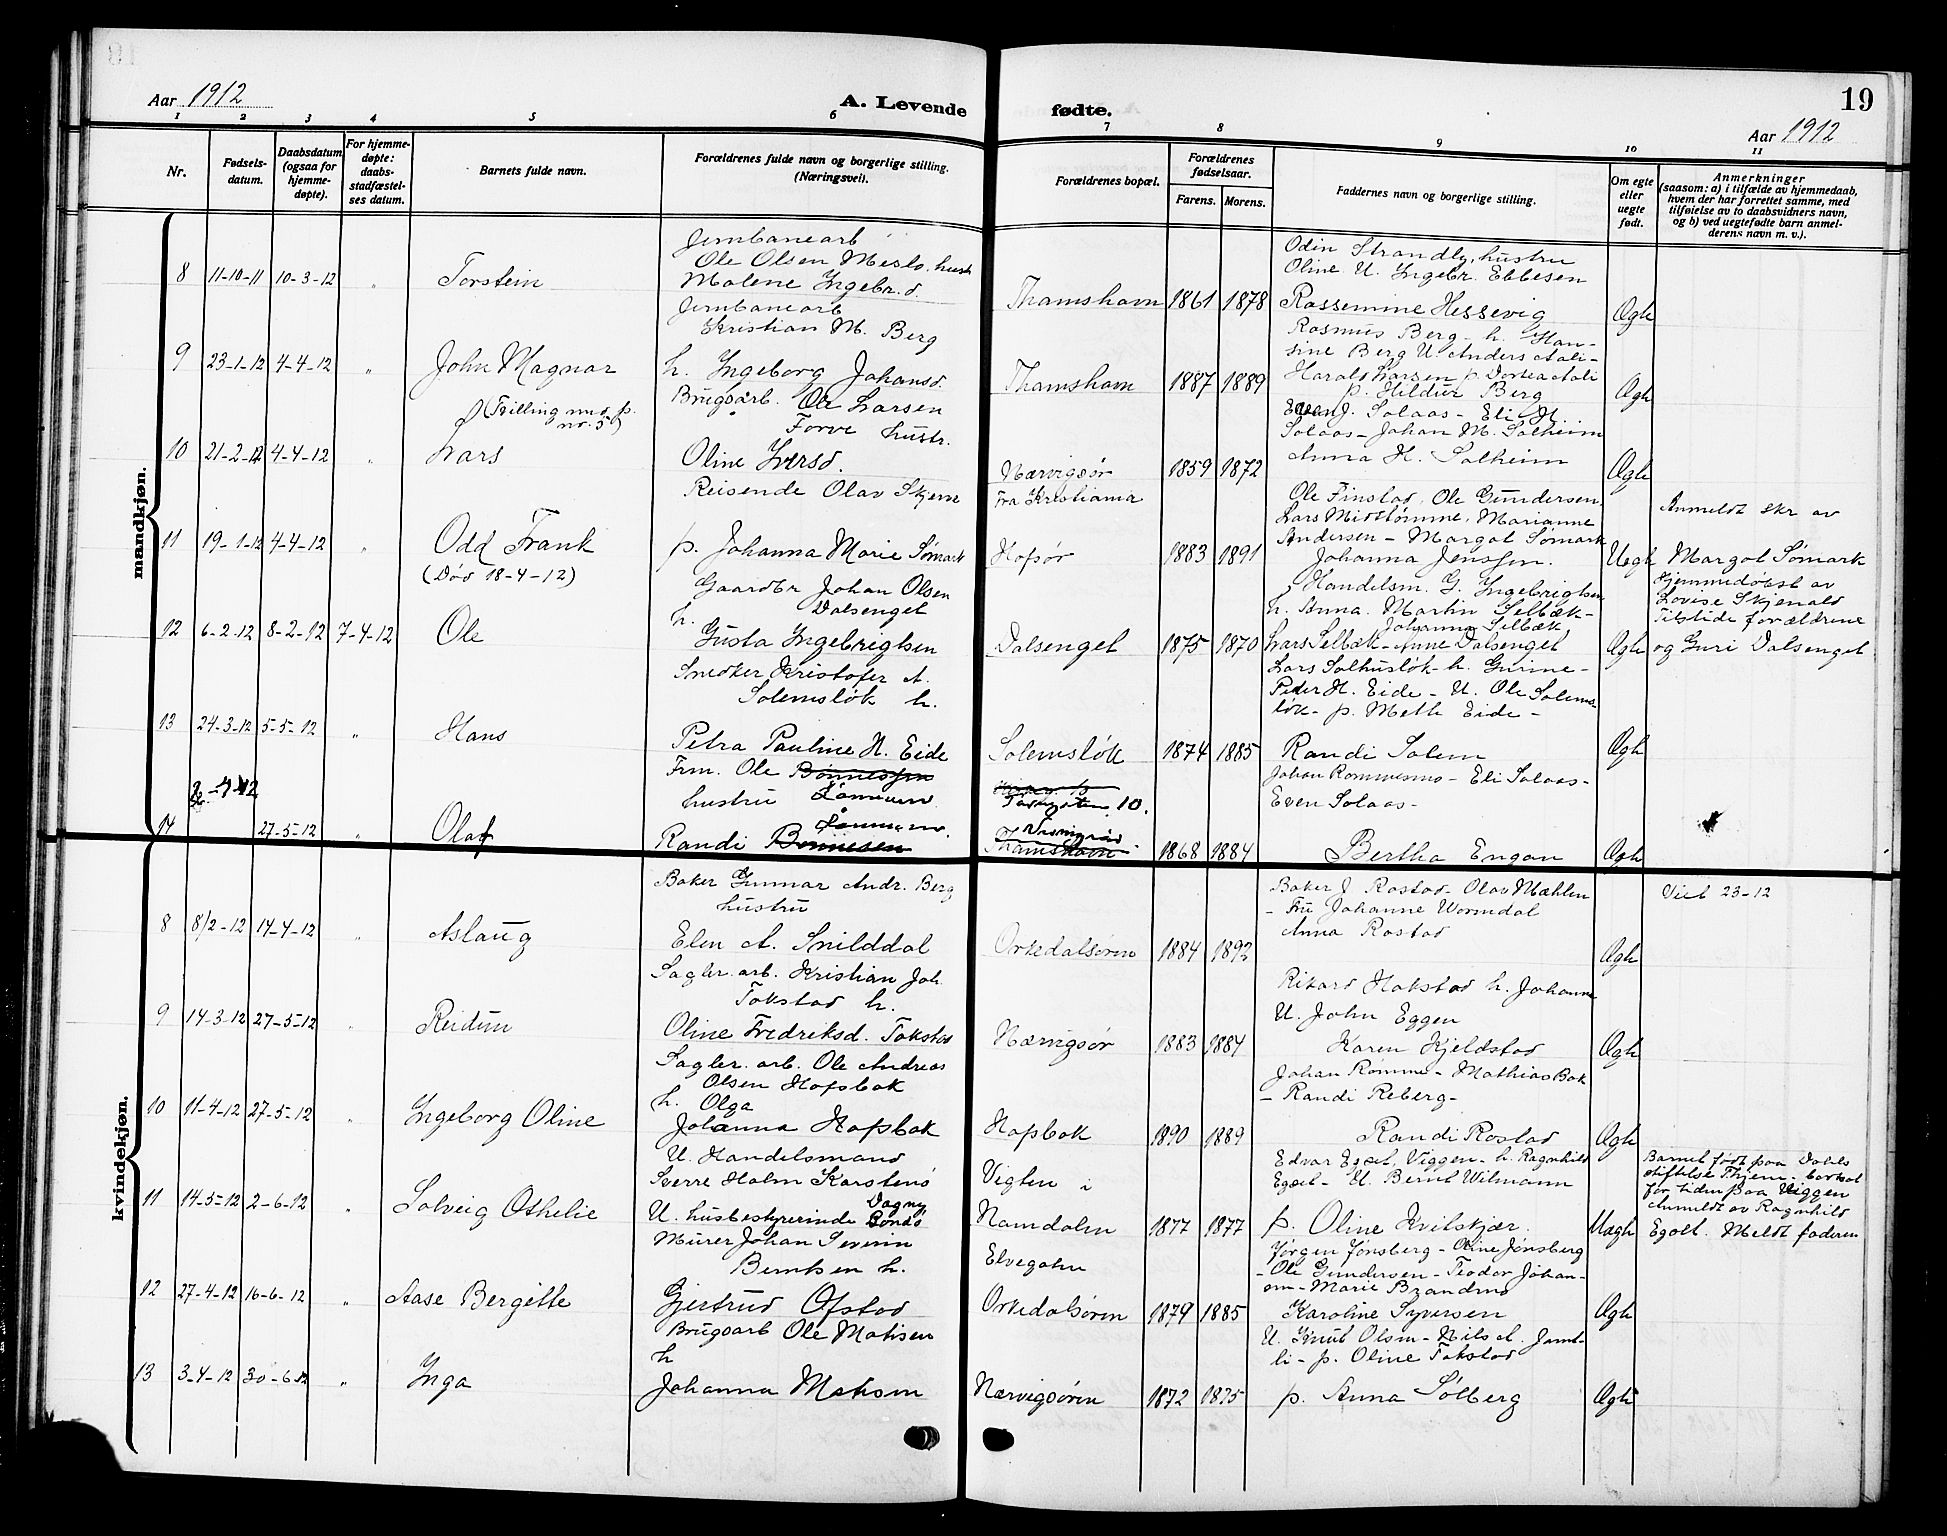 19
Aar 1912
A. Levende fødte.
Aar 1912
1 2 3 4 5 6 7 8 9 10 11
Nr.
Fødsels-
datum.
Daabsdatum
(ogsaa for
hjemme-
døpte).
For hjemme-
døpte:
daabs-
stadfæstel-
ses datum.
Barnets fulde navn.
Forældrenes fulde navn og borgerlige stilling.
(Næringsvei).
Forældrenes bopæl.
Forældrenes
fødselsaar.
Farens. Morens.
Faddernes navn og borgerlige stilling.
Om egte
eller
uegte
født.
Anmerkninger
(saasom: a) i tilfælde av hjemmedaab,
hvem der har forrettet samme, med
tilføielse av to daabsvidners navn,
og b) ved uegtefødte barn anmel-
derens navn m. v.).
mandkjøn.
8 11-10-11 10-3-12 " Torstein
Jernbanearb
Ole Olsen Meslo, hust
Malene Ingebr.d.
Thamshavn 1861 1878
Odin Strandly, hustru
Oline U. Ingebr. Ebbesen
Rossemine Hessevig
Ægte
9 23-1-12 4-4-12 " John Magnar
Jernbanearb
Kristian M. Berg
h. Ingeborg Johansd.
Thamshavn 1887 1889
Rasmus Berg - h. Han-
sine Berg U. Anders Aali-
Harald Larsen p. Dortea Aali
p. Hildur Berg
Ægte
(Tvilling med p.
nr. 5)
10 21-2-12 4-4-12 " Lars
Brugsarb. Ole Larsen
Forve hustr.
Oline Iversd.
Nærvigsør 1859 1872
Even J. Solaas - Eli H.
Solaas - Johan M. Solheim
Anna H. Solheim
Ægte
11 19-1-12 4-4-12 " Odd Frank
(Død 18-4-12)
Reisende Olav Skjerve
p. Johanna Marie Sømark
Fra Kristiania
Hofsør 1883 1891
Ole Finstad, Ole Gundersen,
Lars Midtlømme, Marianne
Andersen - Margot Sømark
Johanna Jenssen.
Uegte
Anmeldt skr av
Margot Sømark
12 6-2-12 8-2-12 7-4-12 Ole
Gaardbr Johan Olsen
h. Dalsenget
Gusta Ingebrigtsen
Dalsenget 1875 1870
Handelsm. G. Ingebrigtsen
h. Anna. Martin Selbæk -
Johanna Selbæk,
Lars Selbæk - Anne Dalsenget
Ægte
Hjemmedøbt av
Lovise Skjenald
Tilstede forældrene
og Guri Dalsenget
13 24-3-12 5-5-12 " Hans
Snedker Kristofer A.
Solemsløk h.
Petra Pauline H. Eide
Solemsløk 1874 1885
Lars Solhusløk - h. Gurine -
Peder H. Eide - U. Ole Solems-
løk - p. Meth Eide -
Randi Solem
Ægte
14 27-5-12 " Olaf
Frm. Ole Bonnessen
hustru
Randi Bonnesen
10.
Thamshavn 1868 1884
Johan Rommesmo - Eli Solaas -
Even Solaas -
Bertha Engan
Ægte
kvindekjøn.
8 8/2-12 14-4-12 " Aslaug
Baker Gunnar Andr. Berg
hustru
Elen A. Snilddal
Orkedalsøren 1884 1892
Baker J Rostad - Olav Mæhlen
- Fru Johanne Wormdal
Anna Rostad
Ægte
Viet 23-12
9 14-3-12 27-5-12 " Reidun
Sagbr. arb. Kristian Joh.
Tokstad h.
Oline Fredriksd. Tokstad
Nærvigsør 1883 1884
Rikard Hakstad h. Johanna
U. John Eggen
Karen Kjeldstad
Ægte
10 11-4-12 27-5-12 " Ingeborg Oline
Sagbr. arb. Ole Andreas
Olsen Hofsbak
h. Olga
Johanna Hofsbak
Hofsbak 1890 1889
Johan Romme - Mathias Bak
- Randi Reberg -
Randi Rostad
Ægte
11 14-5-12 2-6-12 " Solveig Othelie
U. Handelsmand
Sverre Holm Karstenø
U. husbestyrerinde Dagny Bondø
Vigten i
Namdalen 1877 1877
Edvar Egset, Viggen - h. Ragnhild
Egset - U. Bernt Witmann
p. Oline Kvilskjær.
Uægte
Barnet født paa Dahls
stiftelse Thjem - bortsat
for tiden paa Viggen
Anmeldt av Ragnhild
Egset. Meldt faderen
12 27-4-12 16-6-12 " Aase Bergitte
Murer Johan Severin
Berntsen h.
Gjertrud Ofstad
Elvegaten
Orkedalsøren 1879 1885
Jørgen Jønsberg - Oline Jønsberg
- Ole Gundersen - Teodor Johan-
sen - Marie Brandmo
Karoline Syversen
Ægte
13 3-4-12 30-6-12 " Inga
Brugsarb Ole Matisen
h
Johanna Moksem
Nærvigsøren 1872 1875
U. Knut Olsen - Nils A. Jamt-
li - p. Oline Tokstad
p. Anna Sølberg
Ægte